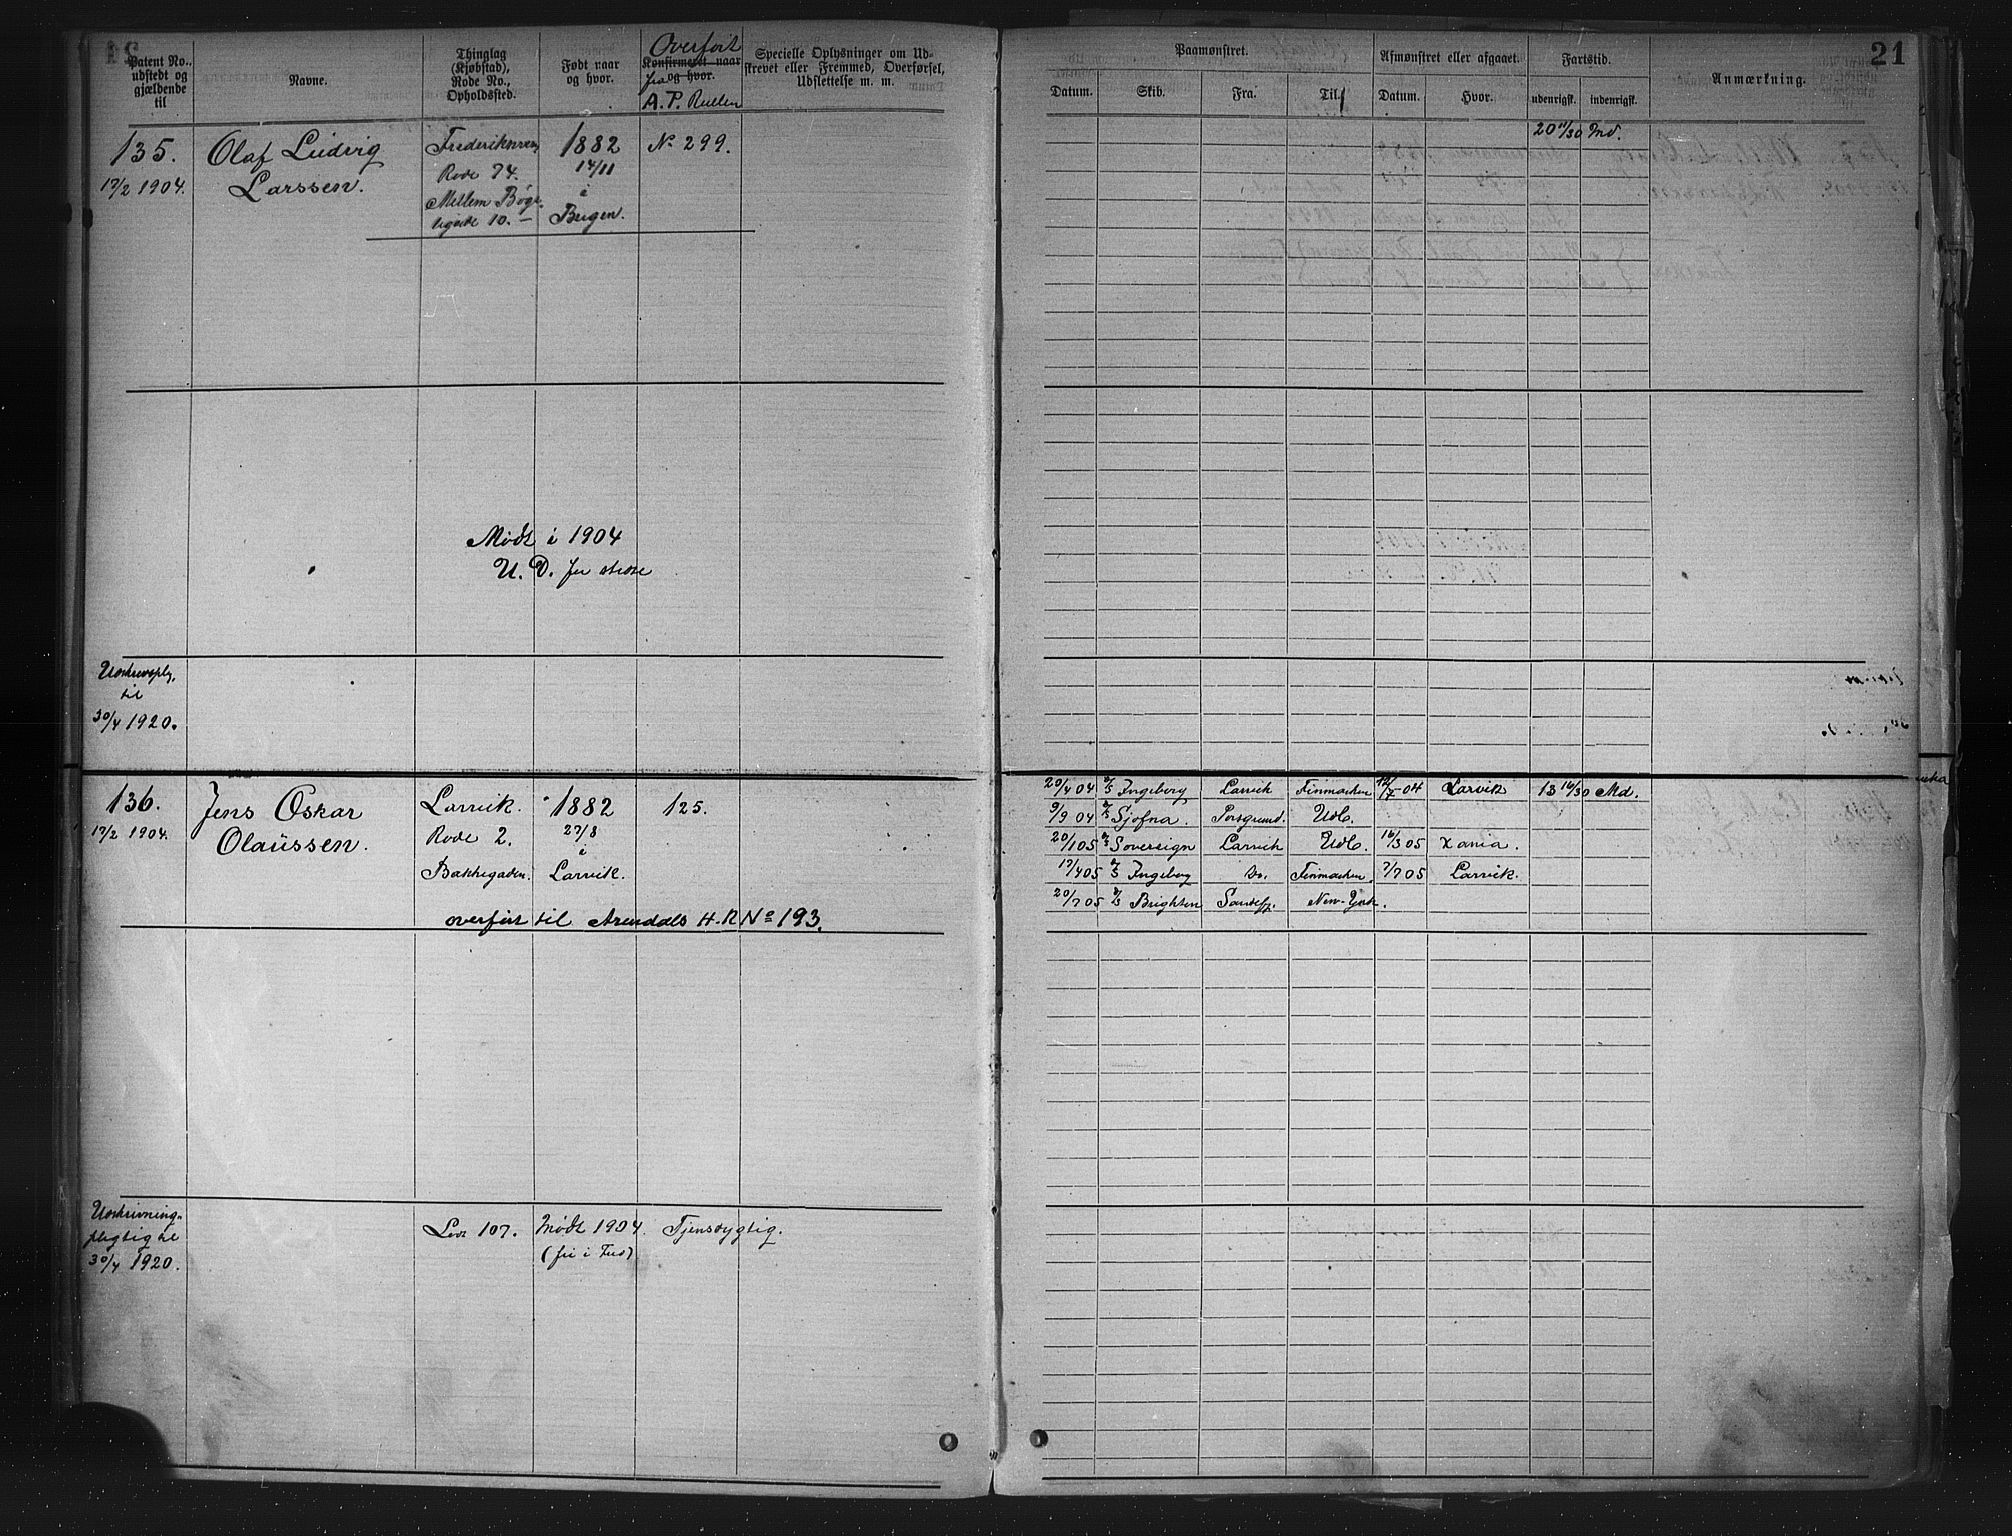 21
Patent No.
udstedt og
gjældende
til
Navne.
Thinglag
(Kjøbstad),
Rode No.,
Opholdssted.
Født naar
og hvor.
Overført
Konfirmeret naar
fra og hvor.
A. P. Rullen
Specielle Oplysninger om Ud-
skrevet eller Fremmed, Overførsel,
Udslettelse m. m.
Paamønstret.
Afmønstret eller afgaaet.
Fartstid.
Anmærkning.
Datum.
Skib.
Fra.
Til.
Datum.
Hvor.
udenrigsk.
indenrigsk.
135.
17/2 1904.
Olaf Ludvig
Larssen.
Frederiksværn
Rode 74.
Mellem Bøge-
ligade 10. —
1882
14/11
i
Bergen.
No 299.
20 11/30 Md.
Mødt i 1904
U. D. for
Udskrevspl.
til
30/4 1920.
136.
17/2 1904.
Jens Oskar
Olaüssen.
Larvik.
Rode 2.
Bakkegaden.
1882
27/8
i
Larvik.
125.
overført til Arendals H.R No 193.
20/4 04 Ingeborg Larvik Finmarken 12/7 04 Larvik 13 16/30 Md.
9/9 04 Sjofna. Porsgrund. Udl.
20/1 05 Sovereign Larvik Udl. 16/3 05 Xania.
17/4 05 Ingeborg Do. Finmarken. 7/7 05 Larvik.
20/7 05 Brighton Sandefj. New-York.
Udskrivning-
pligtig til
30/4 1920.
Lod 107. Mødt 1904. Tjensdygtig.
(fri i Fred)